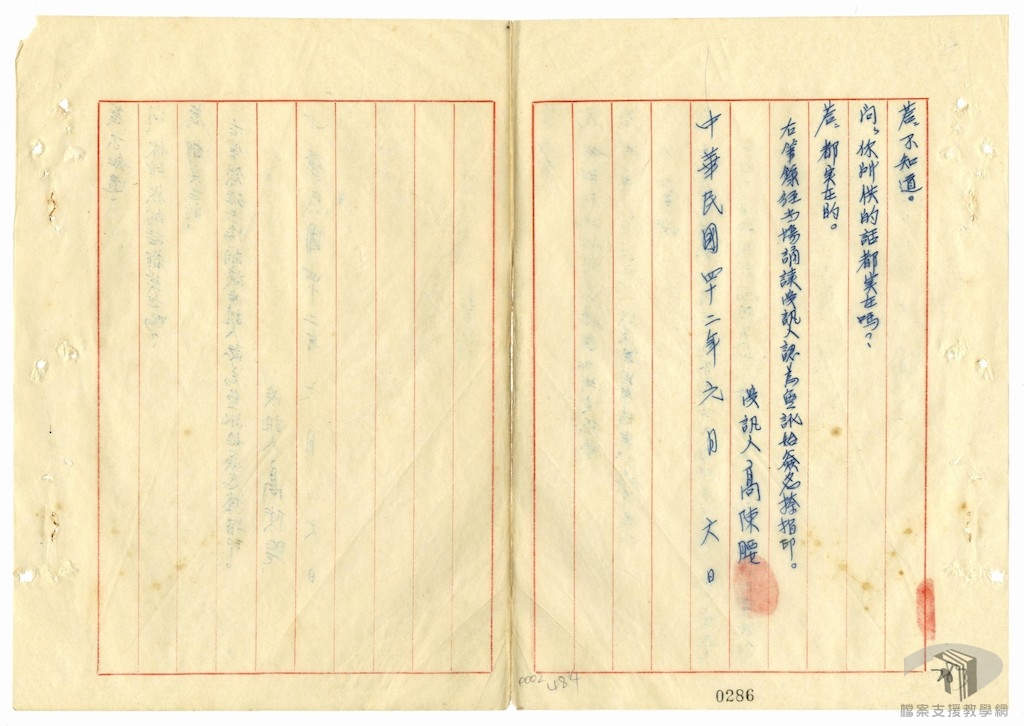 荅、不知道。
问、你所供的話都实在嗎？
荅、都实在的。
右筆錄経当場誦読受訊人認為無訛始簽名捺指印。
受訊人高陳腰
中華民國四十二年元月六日
0286
0002
484
檔案支援教學網